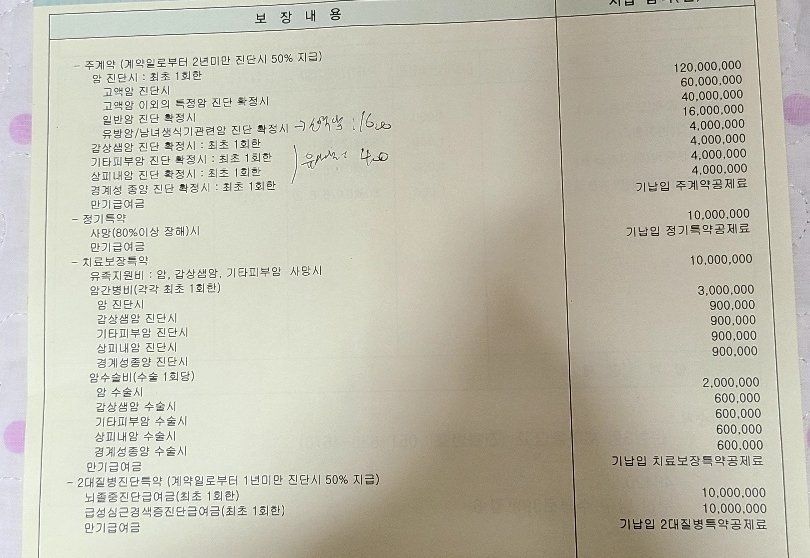 보 장 내 용
- 주계약 (계약일로부터 2년미만 진단시 50% 지급)
암 진단시 : 최초 1회한
고액암 진단시 120,000,000
고액암 이외의 특정암 진단 확정시 60,000,000
일반암 진단 확정시 40,000,000
유방암/남녀생식기관련암 진단 확정시 16,000,000
갑상샘암 진단 확정시 : 최초 1회한 4,000,000
기타피부암 진단 확정시 : 최초 1회한 4,000,000
상피내암 진단 확정시 : 최초 1회한 4,000,000
경계성 종양 진단 확정시 : 최초 1회한 4,000,000
만기급여금 기납입 주계약공제료
- 정기특약
사망(80%이상 장해)시 10,000,000
만기급여금 기납입 정기특약공제료
- 치료보장특약
유족지원비 : 암, 갑상샘암, 기타피부암 사망시 10,000,000
암간병비(각각 최초 1회한)
암 진단시 3,000,000
갑상샘암 진단시 900,000
기타피부암 진단시 900,000
상피내암 진단시 900,000
경계성종양 진단시 900,000
암수술비(수술 1회당)
암 수술시 2,000,000
갑상샘암 수술시 600,000
기타피부암 수술시 600,000
상피내암 수술시 600,000
경계성종양 수술시 600,000
만기급여금 기납입 치료보장특약공제료
- 2대질병진단특약 (계약일로부터 1년미만 진단시 50% 지급)
뇌졸중진단급여금(최초 1회한) 10,000,000
급성심근경색증진단급여금(최초 1회한) 10,000,000
만기급여금 기납입 2대질병특약공제료